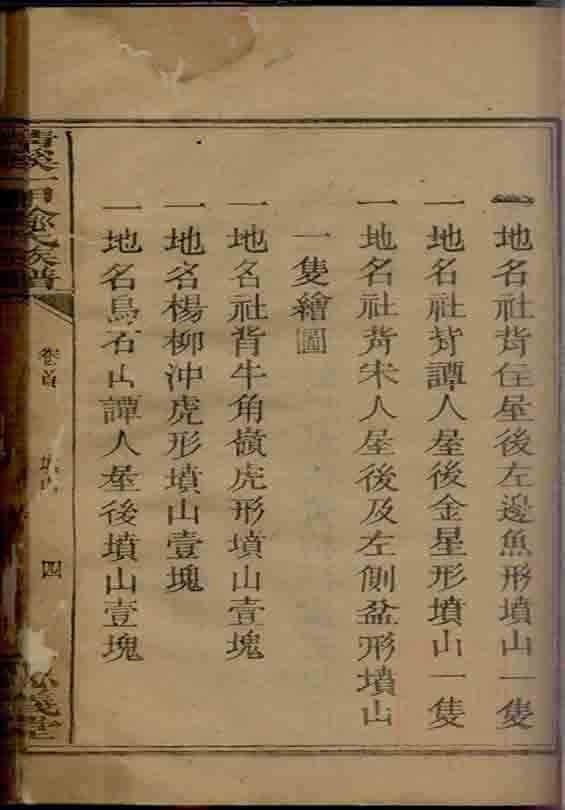 一地名社背住屋後左邊魚形墳山一隻
一地名社背譚人屋後金星形墳山一隻
一地名社背宋人屋後及左側盆形墳山
一隻繪圖
一地名社背牛角嶺虎形墳山壹塊
一地名楊柳沖虎形墳山壹塊
一地名烏石山譚人屋後墳山壹塊
一甲 氏族譜
卷首
四